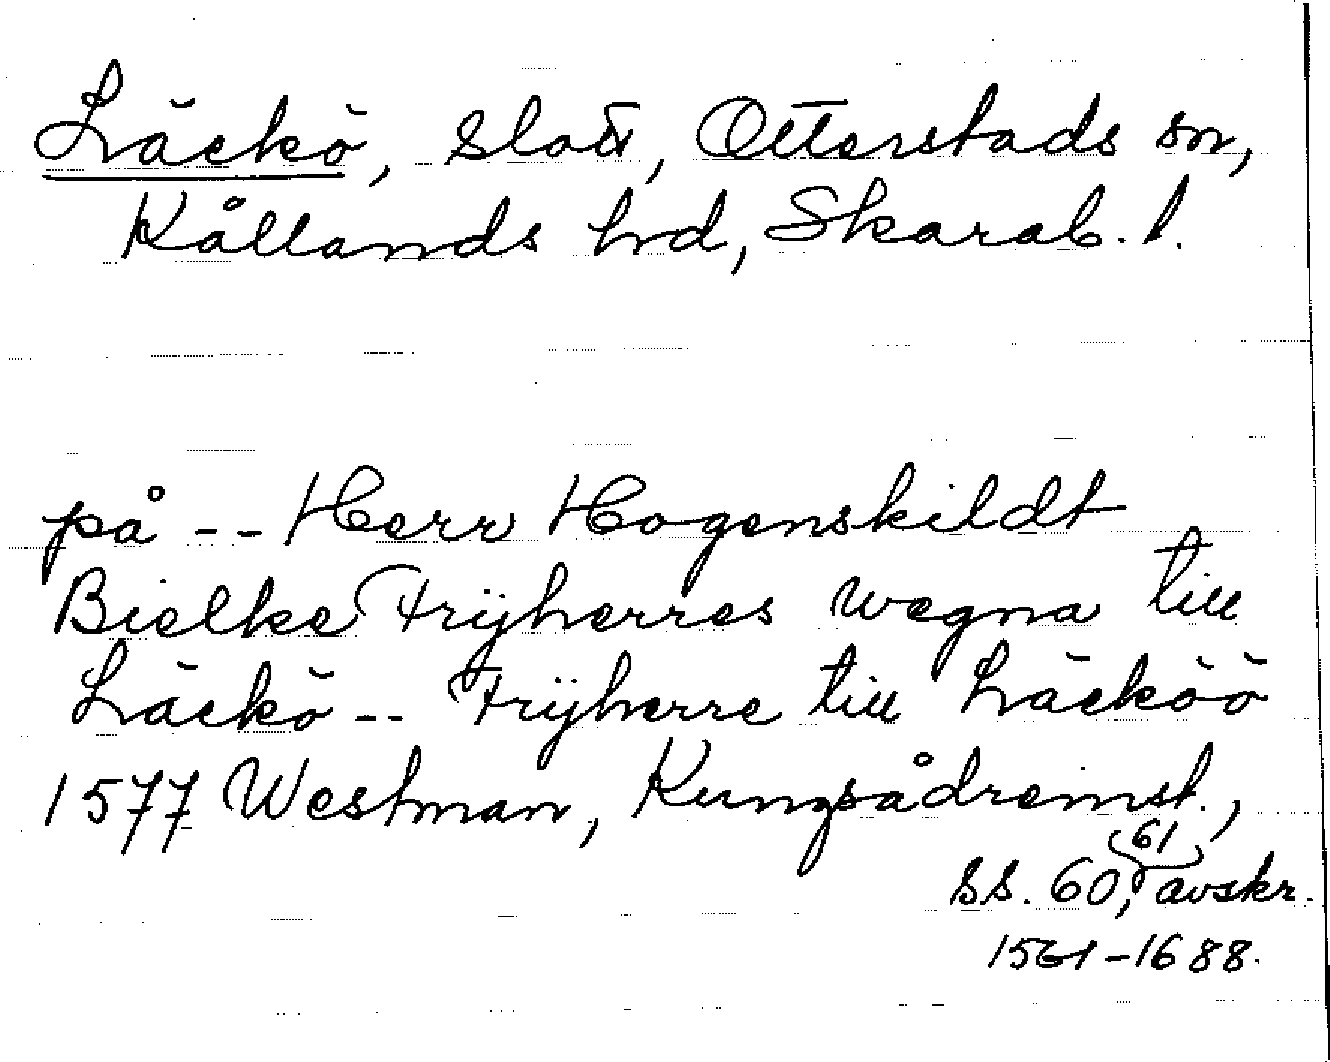 Läckö, slott, Otterstads sn,
Kållands hd, Skarab. l.
på -- Herr Hogenskildt
Bielke Frijherres wegna till
Läckö -- Frijherre till Läcköö
1577 Westman, Kungsådreinst.,
ss. 60, 61 avskr.
1561-1688.